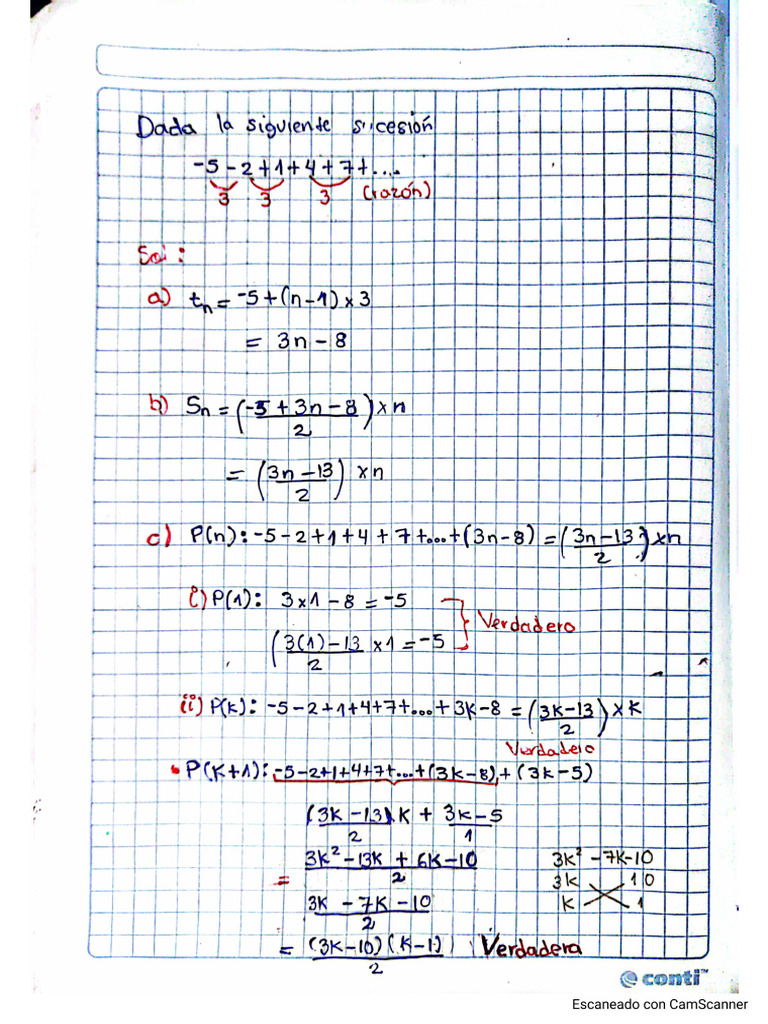 Dada la siguiente sucesión
-5 - 2 + 1 + 4 + 7 + ....
3 3 3 (razón)
Sol:
a) tn = -5 + (n-1) x 3
= 3n - 8
b) Sn = (-5 + 3n - 8 / 2) x n
= (3n - 13 / 2) x n
c) P(n): -5 - 2 + 1 + 4 + 7 + ... + (3n-8) = (3n-13 / 2) x n
i) P(1): 3x1 - 8 = -5
Verdadero
(3(1) - 13 / 2 x 1 = -5
ii) P(k): -5 - 2 + 1 + 4 + 7 + ... + 3k - 8 = (3k-13 / 2) x k
Verdadero
• P(k+1): -5 - 2 + 1 + 4 + 7 + ... + (3k-8) + (3k-5)
(3k - 13)k / 2 + 3k - 5 / 1
3k² - 13k + 6k - 10 / 2 3k² - 7k - 10
= 3k 10
3k - 7k - 10 / 2 k 1
= (3k-10)(k-1) / 2 Verdadera
conti™
Escaneado con CamScanner